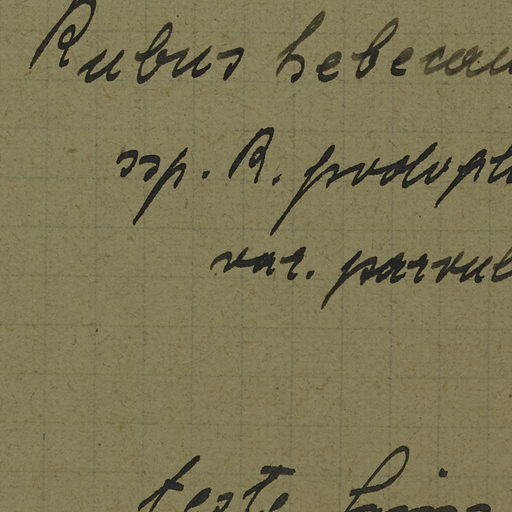 Rubus hebecau
ssp. R. podoph
var. parvul
teste